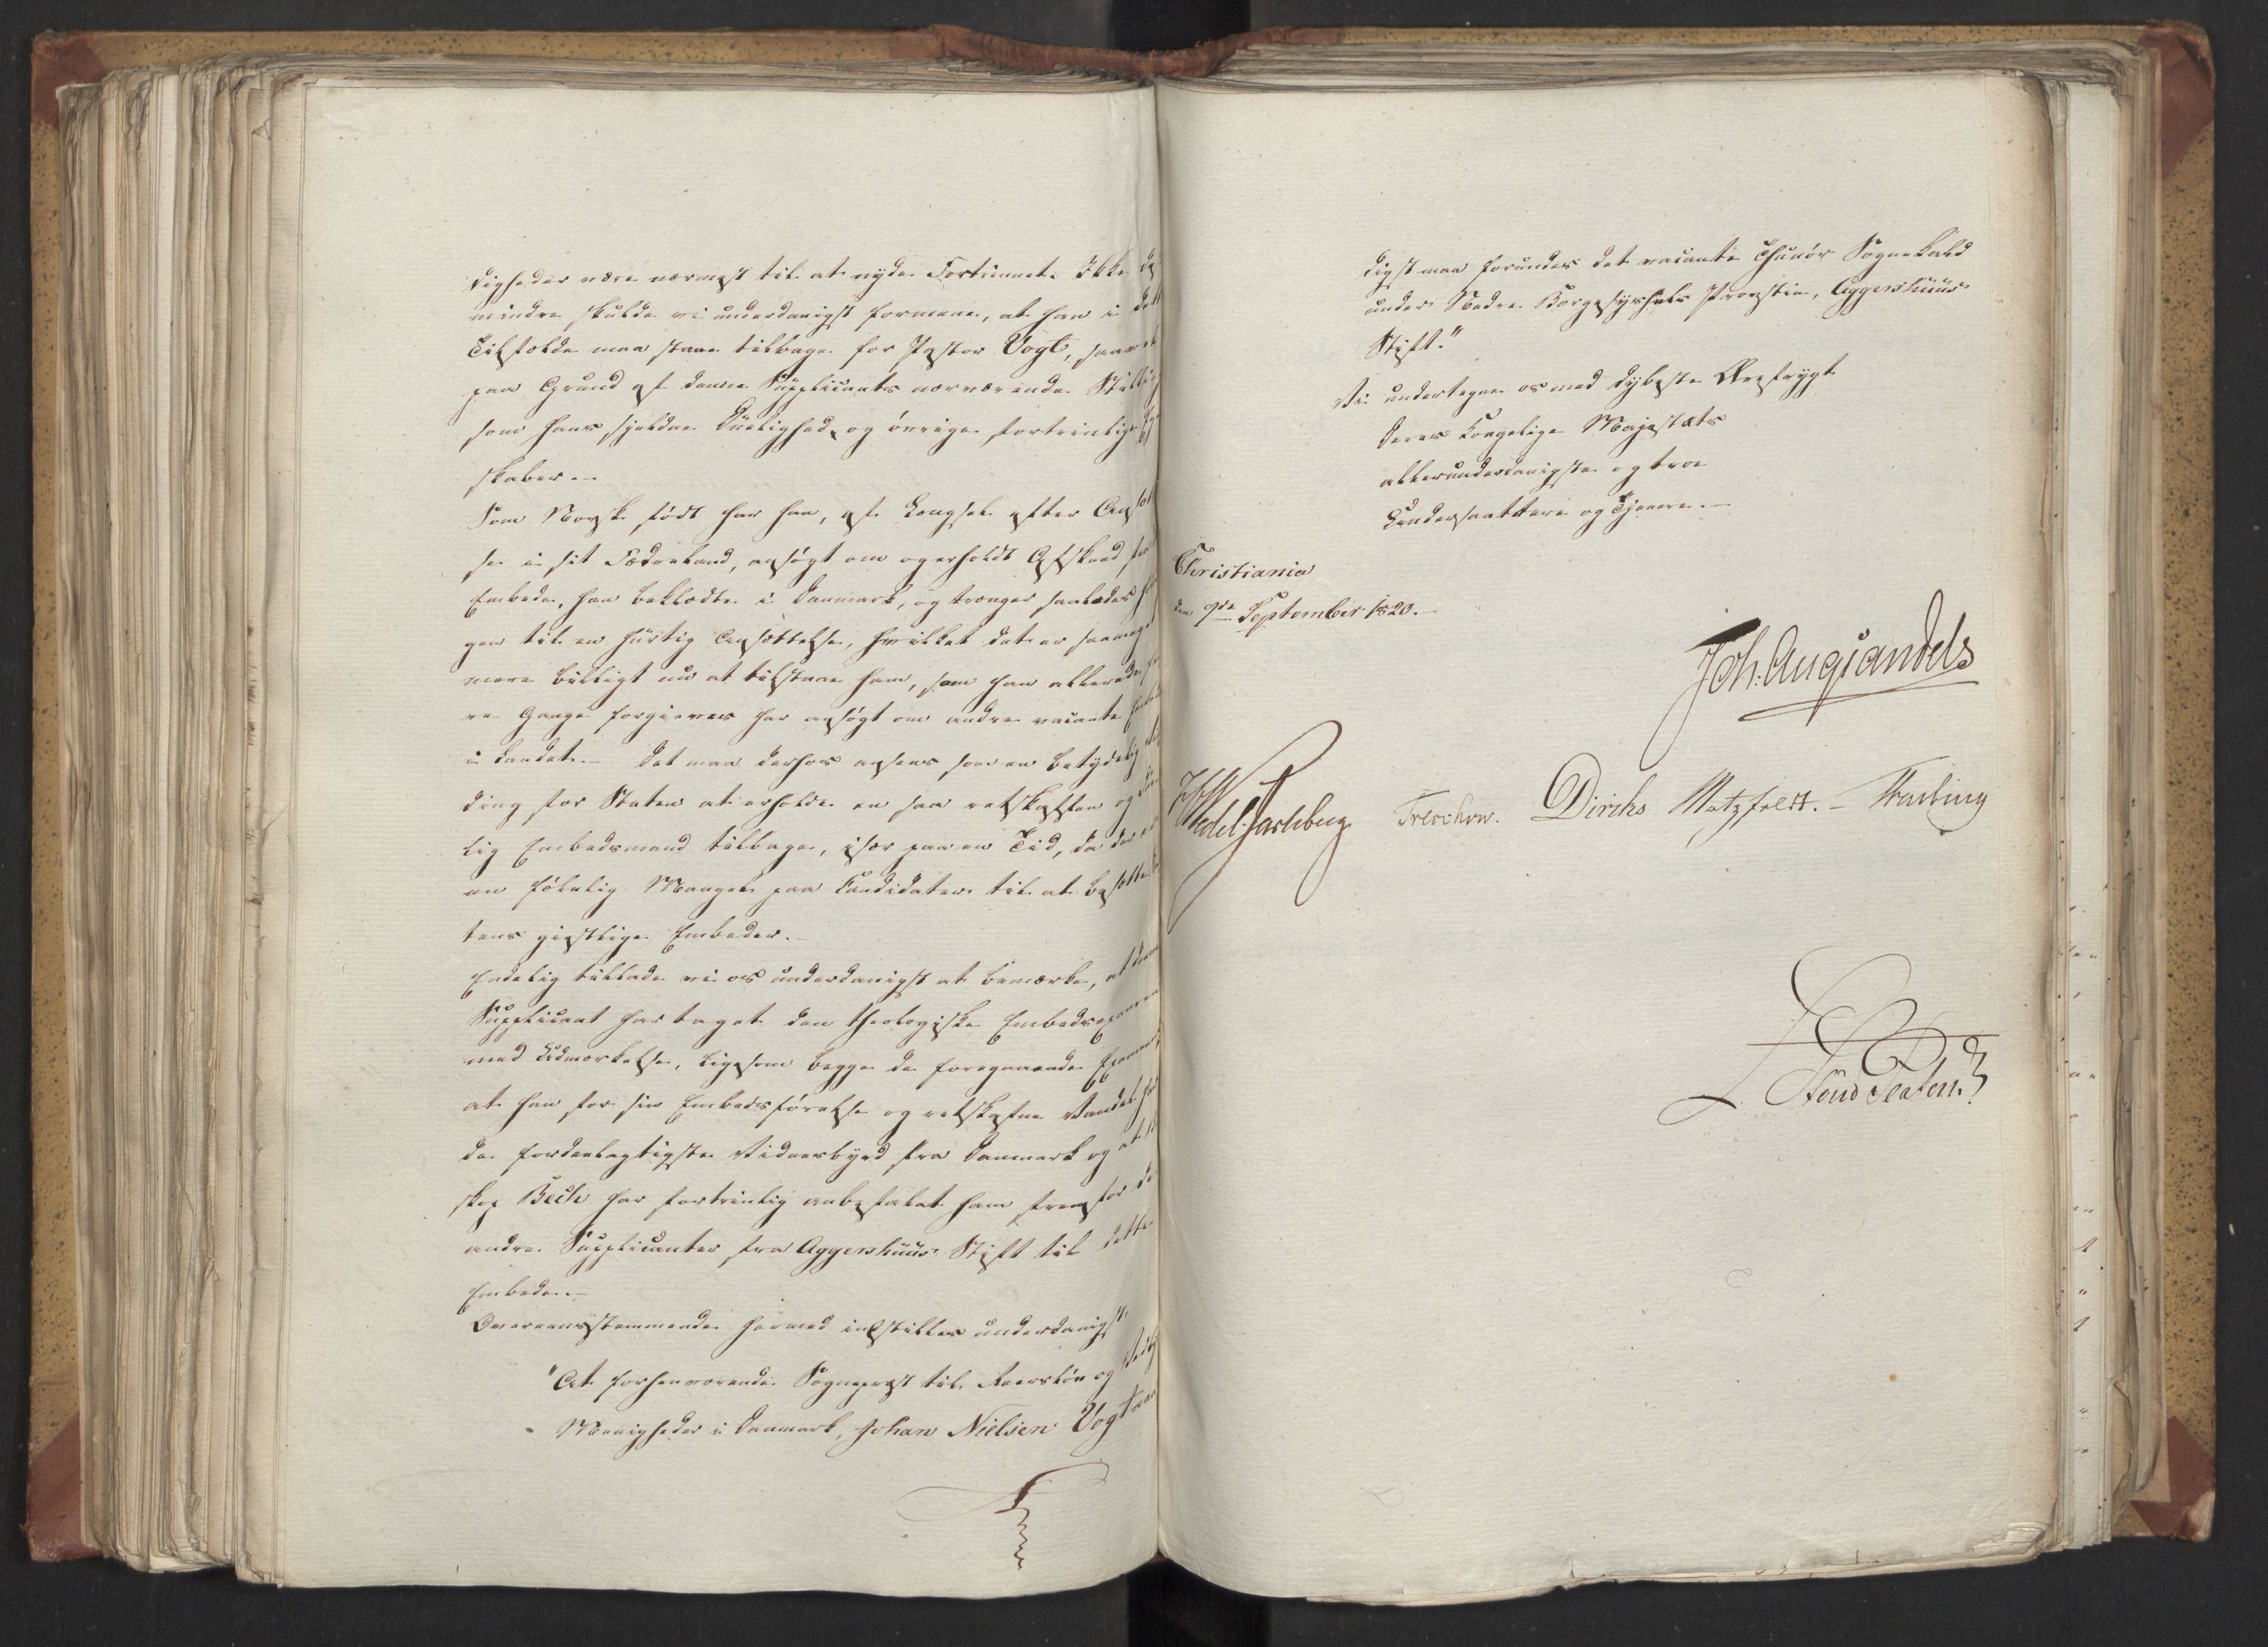 digheder være nærmest til at nyde Fortrinnet. Ikke des
mindre skulde vi underdanigst formene, at han i dette
Tilfælde maa staae tilbage for Pastor Vogt, saavel
paa Grund af denne Supplicants nærværende Stilling
som hans sjeldne Duelighed, og øvrige fortrinlige Egen
skaber.-
Som Norsk født har han, af Længsel efter Ansættel
se i sit Fædreland, ansøgt om og erholdt Afskeed fra
Embede, han beklædte i Danmark, og trænger saaledes
gen til en hurtig Ansættelse, hvilket det er saameget
mere billigt nu at tilstaae ham, som han allerede
re Gange forgieves har ansøgt om andre vacante Embeder
i Landet.- Det maa derhos ansees som en betydelig
ding for Staten at erholde en saa retskaffen og
lig Embedsmand tilbage, især paa en Tid, da der er
en følelig Mangel paa Candidater til at besætte
tens geistlige Embeder.-
Endelig tillade vi os underdanigst at bemærke, at denne
Supplicant har taget den theologiske Embedsexamen
med Udmærkelse, ligesom begge de foregaaende Examina
at han for sin Embedsførelse og retskafne Vandel har
de fordeelagtigste Vidnesbyrd fra Danmark og at Bi
skop Bech har fortrinlig anbefalet ham fremfor de
andre Supplicanter fra Aggershuus Stift til dette
Embede.-
Overeensstemmende hermed indstilles underdanigst:
"At forhenværende Sognepræst til Reerslöv og
Menigheder i Danmark, Johan Nielsen Vogt naa
digst maa forundes det vacante Thunøe Sognekald
under Nedre Borgesyssels Provstie, Aggershuus
Stift."
Vi undertegne os med dybeste Ærefrygt
Deres Kongelige Majestæts
allerunderdanigste og troe
Undersaattere og Tjenere.-
Christiania
den 9de September 1820.-
Joh. Aug. Sandels
JHW
Wedel-Jarlsberg
Treschow. Diriks Motzfeldt. - Fasting